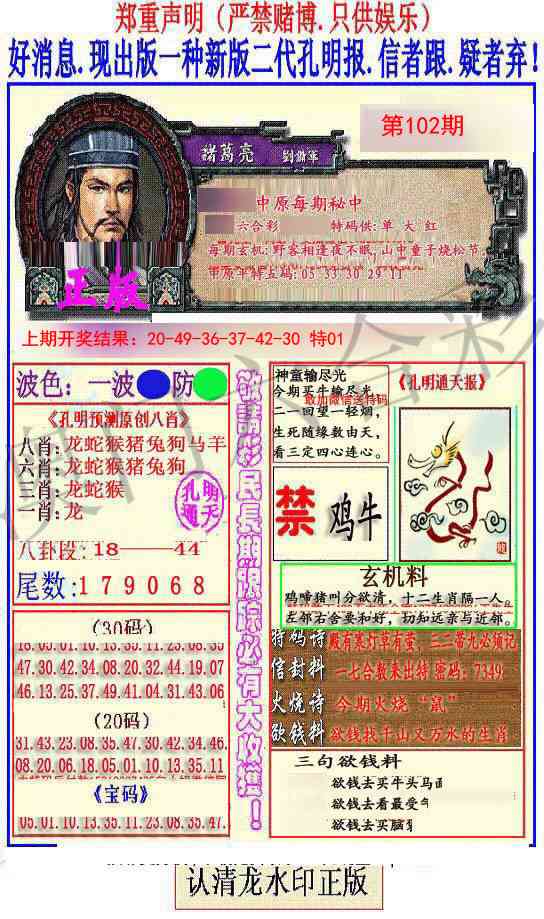 郑重声明（严禁赌博.只供娱乐）
好消息.现出版一种新版二代孔明报.信者跟.疑者弃！
第102期
諸葛亮 劉備軍
中原每期秘中
六合彩 特码供：单 大 红
每期玄机：野客相逢夜不眠，山中童子烧松节
中原平特五码：05 33 30 29 11
正版
上期开奖结果：20-49-36-37-42-30 特01
波色：一波 防
《孔明预测原创八肖》
八肖：龙蛇猴猪兔狗马羊
六肖：龙蛇猴猪兔狗
三肖：龙蛇猴
一肖：龙
孔明
通天
八卦段：18——44
尾数：179068
（30码）
18.05.01.10.13.35.11.23.08.35
47.30.42.34.08.20.32.44.19.07
46.13.25.37.49.41.04.31.43.06
（20码）
31.43.23.08.35.47.30.42.34.46.
08.20.06.18.05.01.10.13.35.11
《宝码》
05.01.10.13.35.11.23.08.35.47.
敬請彩民長期跟踪必有大收獲！
神童输尽光
今期买牛输尽光
敢加微信送特码
二一回望一轻烟，
生死随缘数由天，
看三定四心连心。
禁 鸡牛
《孔明通天报》
玄机料
鸡啼猪叫分欲清，十二生肖隔一人。
左邻右舍要和好，切知远亲与近邻。
特码诗 殿有寒灯草有萤，三二带九必须记
信封料 一七合数来出特 密码：7349
火烧诗 今期火烧“鼠”
欲钱料 欲钱找千山又万水的生肖
三句欲钱料
欲钱去买牛头马面
欲钱去看最受
欲钱去买脑
认清龙水印正版